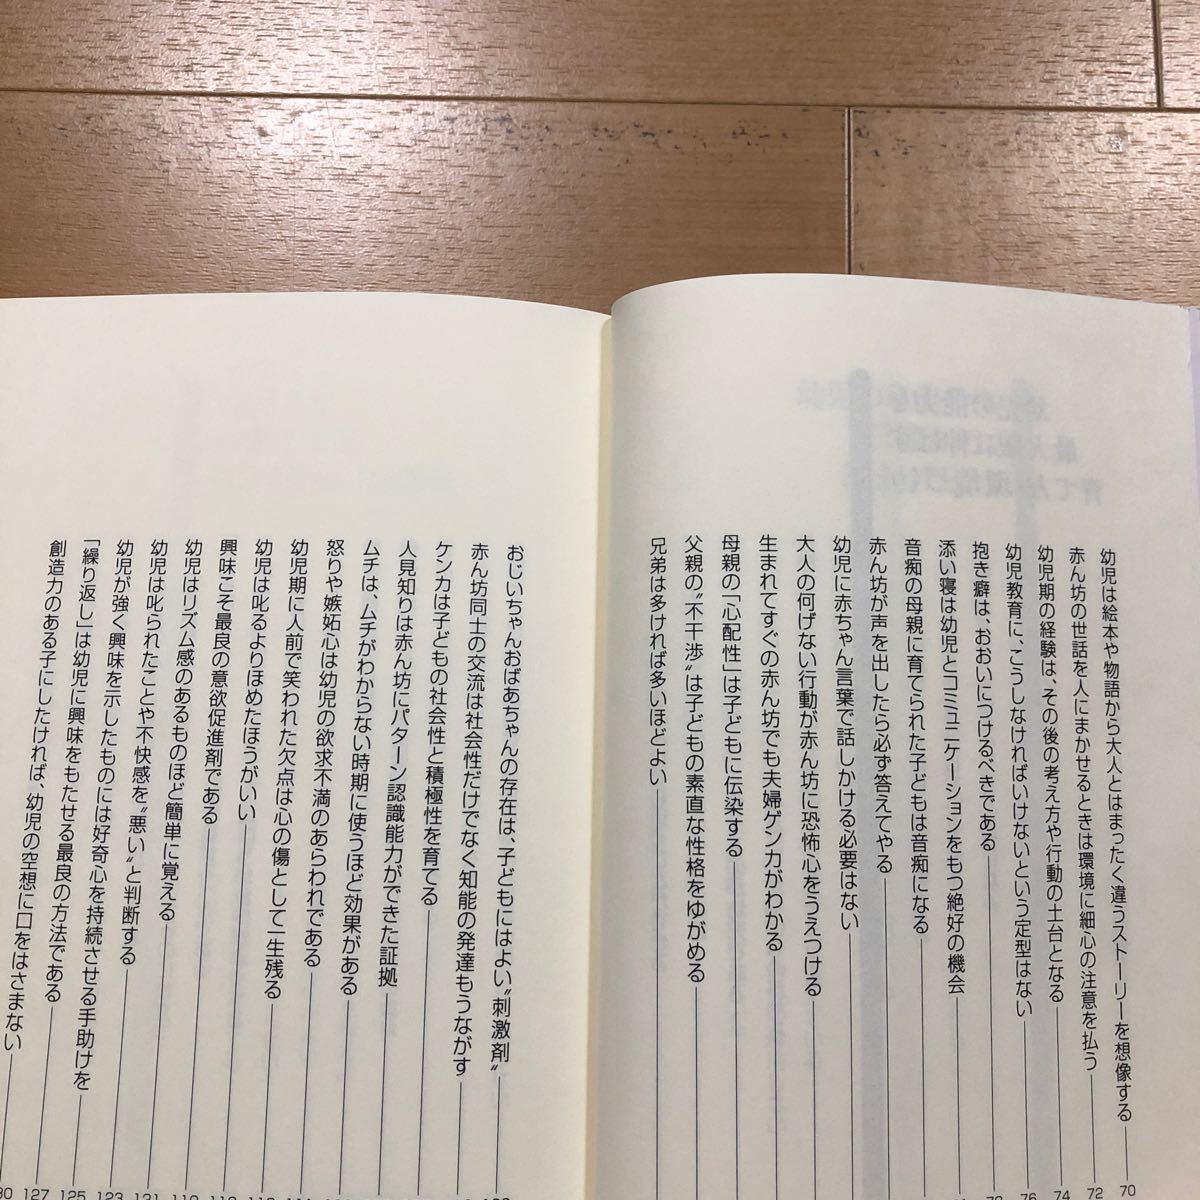 幼児は絵本や物語から大人とはまったく違うストーリーを想像する 70
赤ん坊の世話を人にまかせるときは環境に細心の注意を払う 72
幼児期の経験は、その後の考え方や行動の土台となる 74
幼児教育に、こうしなければいけないという定型はない 76
抱き癖は、おおいにつけるべきである
添い寝は幼児とコミュニケーションをもつ絶好の機会
音痴の母親に育てられた子どもは音痴になる
赤ん坊が声を出したら必ず答えてやる
幼児に赤ちゃん言葉で話しかける必要はない
大人の何げない行動が赤ん坊に恐怖心をうえつける
生まれてすぐの赤ん坊でも夫婦ゲンカがわかる
母親の「心配性」は子どもに伝染する
父親の〝不干渉〟は子どもの素直な性格をゆがめる
兄弟は多ければ多いほどよい
おじいちゃんおばあちゃんの存在は、子どもにはよい〝刺激剤〟
赤ん坊同士の交流は社会性だけでなく知能の発達もうながす
ケンカは子どもの社会性と積極性を育てる
人見知りは赤ん坊にパターン認識能力ができた証拠
ムチは、ムチがわからない時期に使うほど効果がある
怒りや嫉妬心は幼児の欲求不満のあらわれである
幼児期に人前で笑われた欠点は心の傷として一生残る
幼児は叱るよりほめたほうがいい
興味こそ最良の意欲促進剤である
幼児はリズム感のあるものほど簡単に覚える
幼児は叱られたことや不快感を〝悪い〟と判断する
幼児が強く興味を示したものには好奇心を持続させる手助けを 125
「繰り返し」は幼児に興味をもたせる最良の方法である 127
創造力のある子にしたければ、幼児の空想に口をはさまない